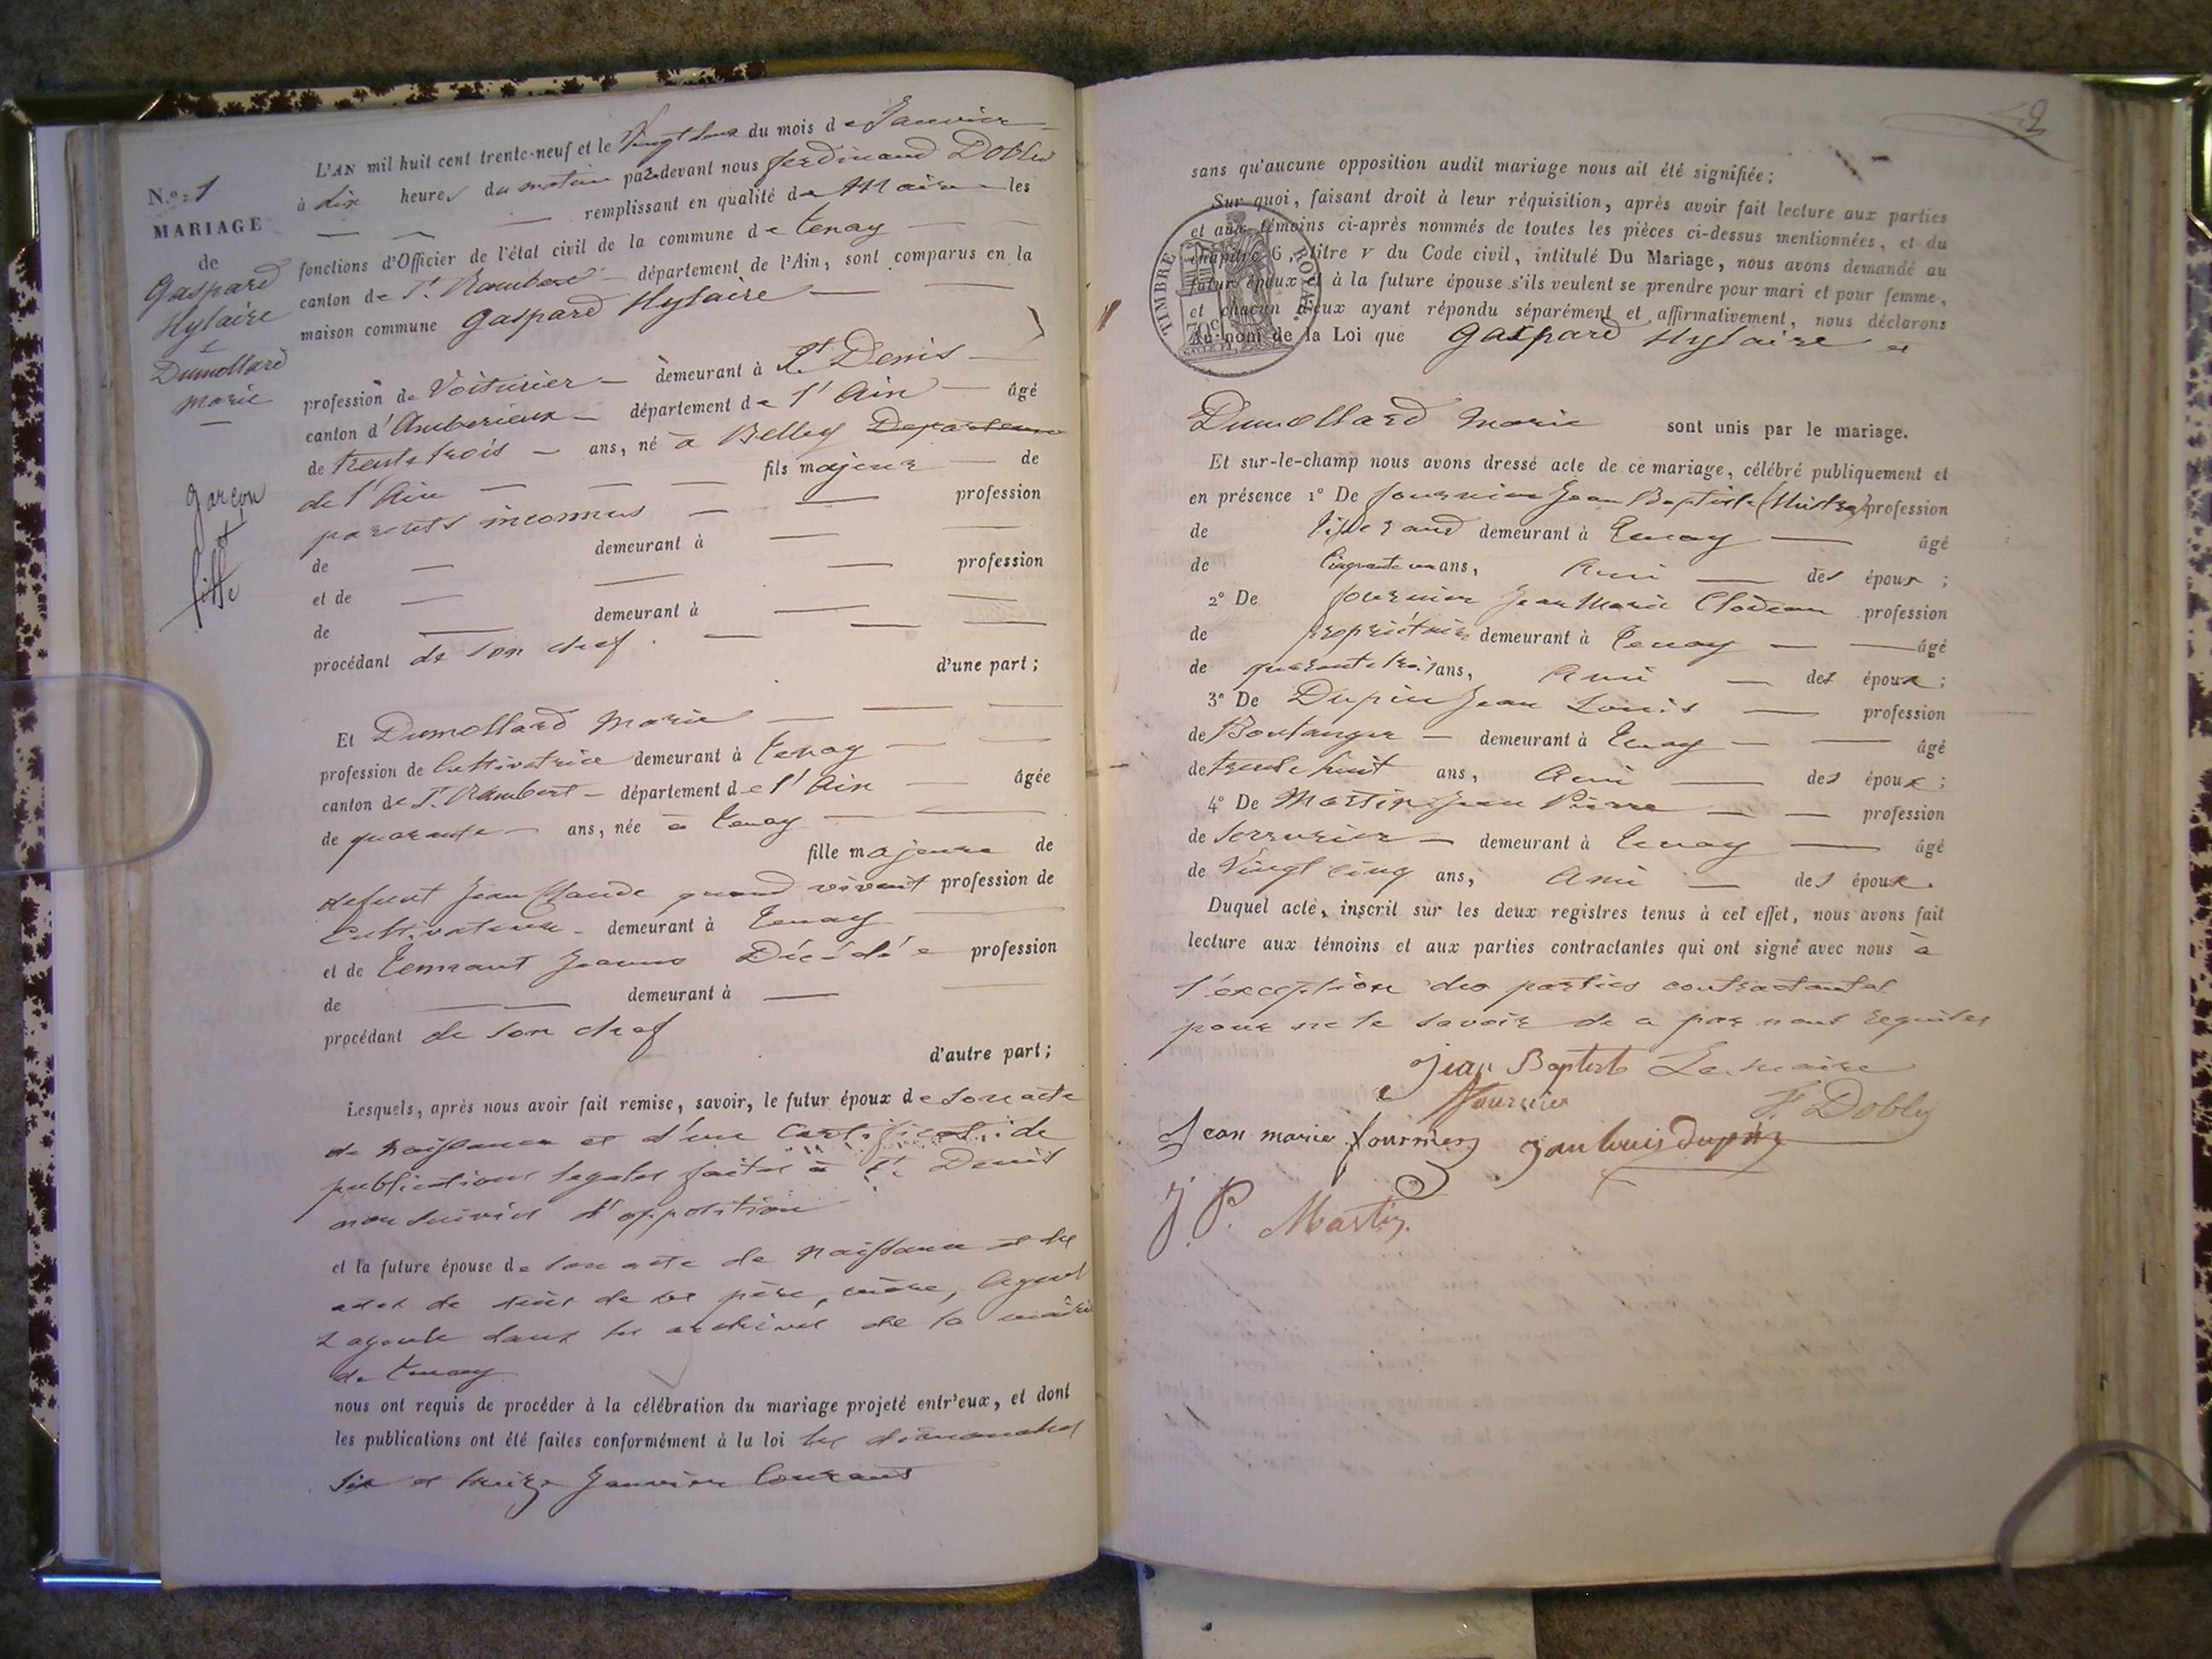 N.º: 1
MARIAGE
de
Gaspard
Hylaire
&
Dumollard
marie
garçon
et
fille
L'AN mil huit cent trente-neuf et le Vingt du mois de Janvier
à dix heures du matin par-devant nous ferdinand Dobly
remplissant en qualité de Maire les
fonctions d'Officier de l'état civil de la commune de tenay
canton de St. Rambert département de l'Ain, sont comparus en la
maison commune Gaspard Hylaire
profession de Voiturier demeurant à St. Denis
canton d'Amberieux département de l'Ain âgé
de trente trois ans, né à Belley Departemen
de l'Ain fils majeur de
parents inconnus profession
de demeurant à
et de profession
de demeurant à
procédant de son chef
d'une part;
Et Dumollard Marie
profession de Cultivatrice demeurant à tenay
canton de St. Rambert département de l'Ain âgée
de quarante ans, née à tenay
fille majeure de
defunt Jean Claude quand vivait profession de
Cultivateur demeurant à tenay
et de Jeanne Décédée profession
de demeurant à
procédant de son chef
d'autre part;
Lesquels, après nous avoir fait remise, savoir, le futur époux de son acte
de naissance et d'un Certificat de
publications legales faites à St. Denis
non suivies d'opposition
et la future épouse de son acte de naissance et des
actes de décès de ses père, mère, Ayeul
& ayeule dans les archives de la mairie
de tenay
nous ont requis de procéder à la célébration du mariage projeté entr'eux, et dont
les publications ont été faites conformément à la loi les dimanches
six et treize Janvier Courant
2
sans qu'aucune opposition audit mariage nous ait été signifiée;
Sur quoi, faisant droit à leur réquisition, après avoir fait lecture aux parties
et aux témoins ci-après nommés de toutes les pièces ci-dessus mentionnées, et du
chapitre 6, titre V du Code civil, intitulé Du Mariage, nous avons demandé au
futur époux et à la future épouse s'ils veulent se prendre pour mari et pour femme,
et chacun d'eux ayant répondu séparément et affirmativement, nous déclarons
Au nom de la Loi que Gaspard Hylaire et
TIMBRE ROYAL
70c
Dumollard Marie sont unis par le mariage.
Et sur-le-champ nous avons dressé acte de ce mariage, célébré publiquement et
en présence 1º De fournier Jean Baptiste profession
de tisserand demeurant à Tenay âgé
de Cinquante un ans, Ami des époux;
2º De fournier Jean Marie profession
de propriétaire demeurant à Tenay âgé
de quarante trois ans, Ami des époux;
3º De Dupin Jean Louis profession
de Boulanger demeurant à Tenay âgé
de trente huit ans, Ami des époux;
4º De Martin Jean Pierre profession
de serrurier demeurant à Tenay âgé
de Vingt cinq ans, Ami des époux.
Duquel acte, inscrit sur les deux registres tenus à cet effet, nous avons fait
lecture aux témoins et aux parties contractantes qui ont signé avec nous à
l'exception des parties contractantes
pour ne le savoir de ce par nous requises
Jean Baptiste Le maire
fournier F. Dobly
Jean marie fournier jan louis dupin
J P. Martin.